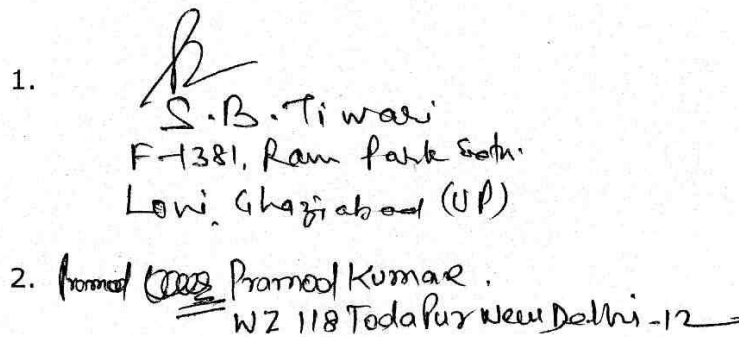 1.
S.B. Tiwari
F-1381, Ram Park
Loni, Ghaziabad (UP)
2. Pramod Pramod Kumar.
WZ 118 TodaPur New Delhi-12